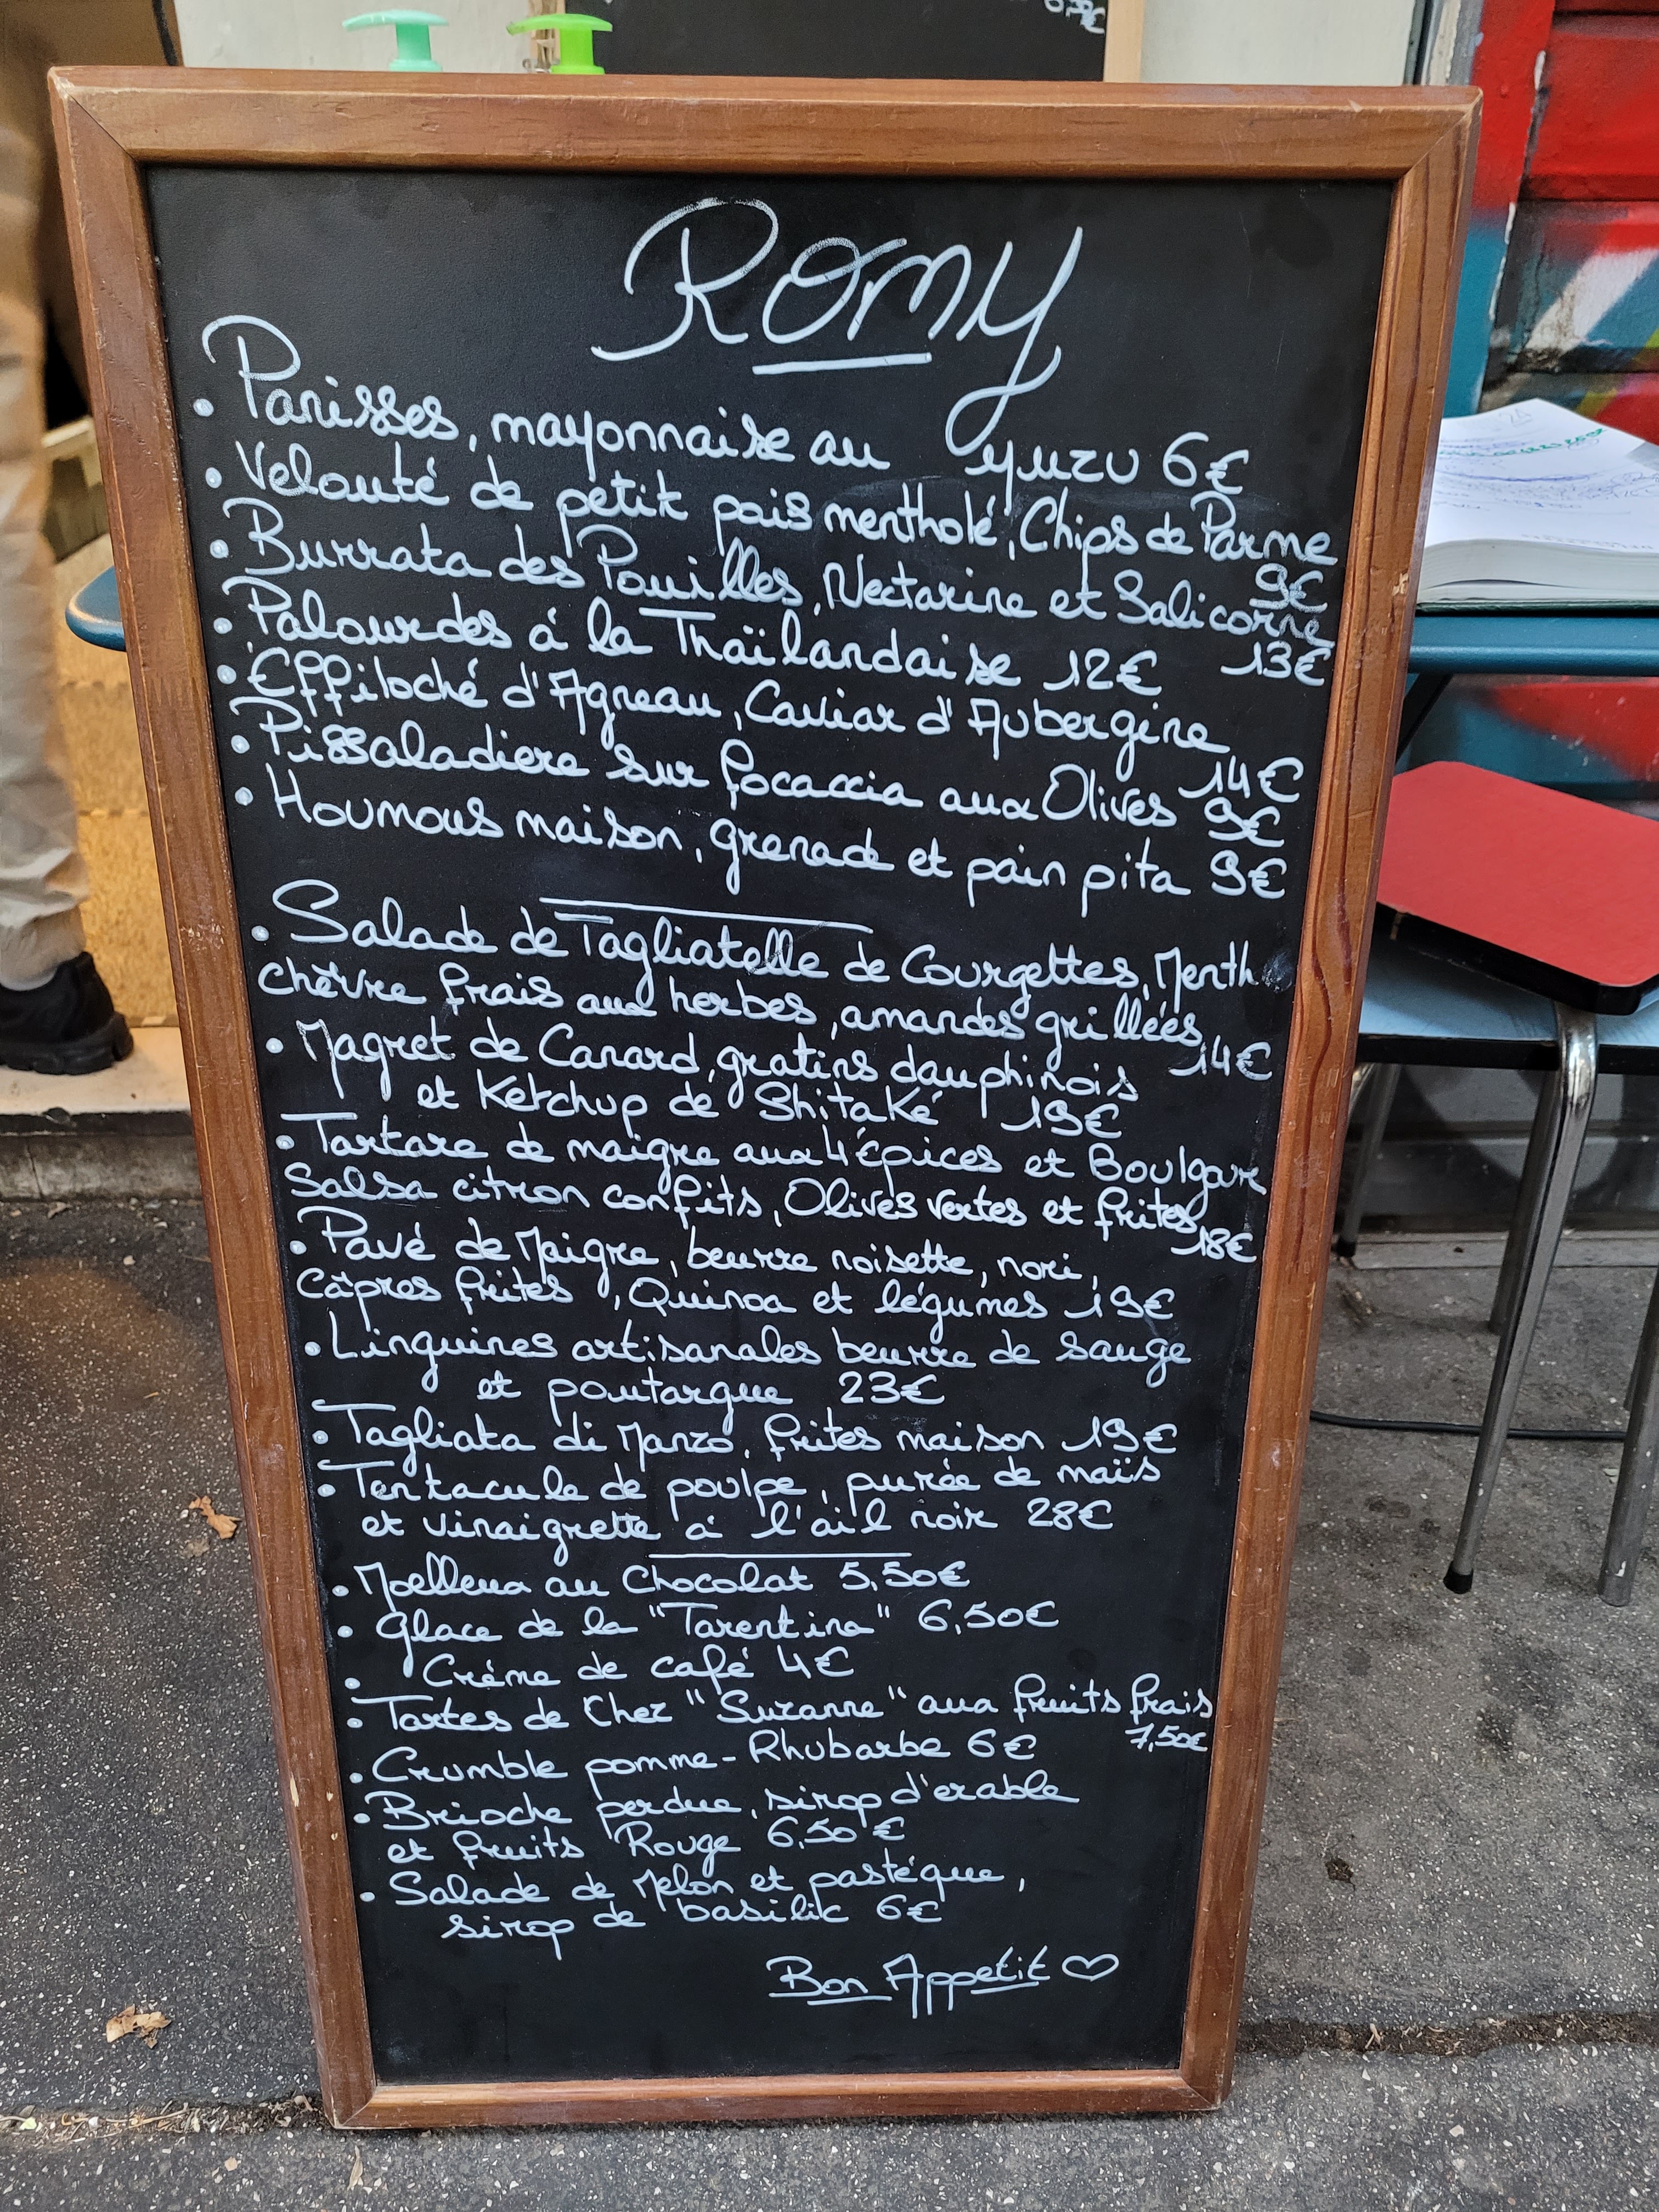 Romy
• Panisses, mayonnaise au yuzu 6€
• Velouté de petit pois mentholé, Chips de Parme
9€
• Burrata des Pouilles, Nectarine et Salicorne
13€
• Palourdes à la Thaïlandaise 12€
• Effiloché d'Agneau, Caviar d'Aubergine
14€
• Pissaladiere sur focaccia aux Olives 9€
• Houmous maison, grenade et pain pita 9€
• Salade de Tagliatelle de Courgettes, Menth
chèvre frais aux herbes, amandes grillées
14€
• Magret de Canard, gratins dauphinois
et Ketchup de Shitaké 19€
• Tartare de maigre aux 4 épices et Boulgare
Salsa citron confits, Olives vertes et frites
18€
• Pavé de Maigre, beurre noisette, nori,
câpres frites, Quinoa et légumes 19€
• Linguines artisanales beurre de sauge
et poutargue 23€
• Tagliata di Manzo, frites maison 19€
• Tentacule de poulpe, purée de maïs
et vinaigrette à l'ail noir 28€
• Moelleux au Chocolat 5,50€
• Glace de la "Tarentina" 6,50€
• Crème de café 4€
• Tartes de Chez "Suzanne" aux fruits frais
7,50€
• Crumble pomme-Rhubarbe 6€
• Brioche perdue, sirop d'erable
et fruits Rouge 6,50€
• Salade de Melon et pastèque,
sirop de basilic 6€
Bon Appetit ♡